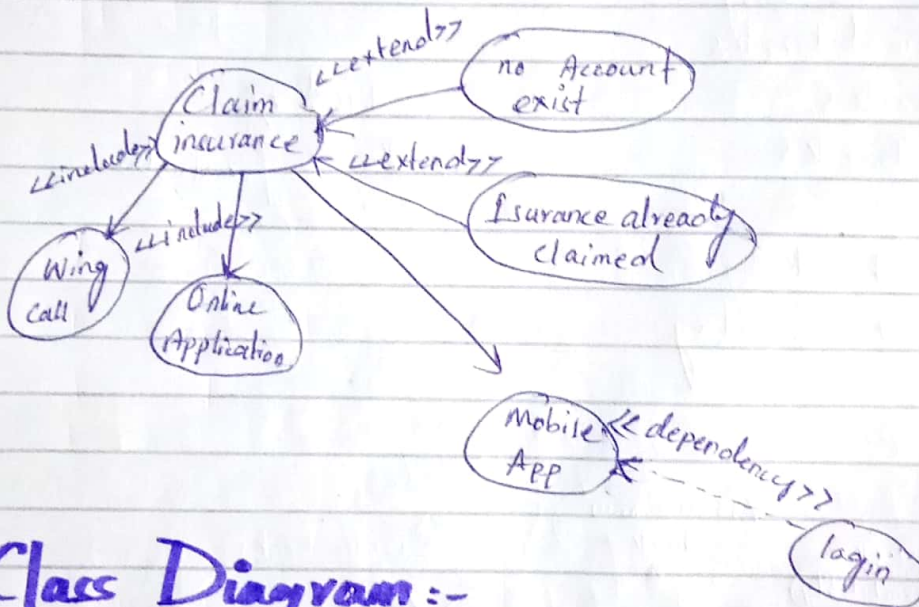 <<extend>>
no Account
exist
Claim
insurance
<<include>>
<<extend>>
Isurance already
claimed
<<include>>
Wing
call
Online
Application
Mobile
App
<<dependency>>
login
Class Diagram:-